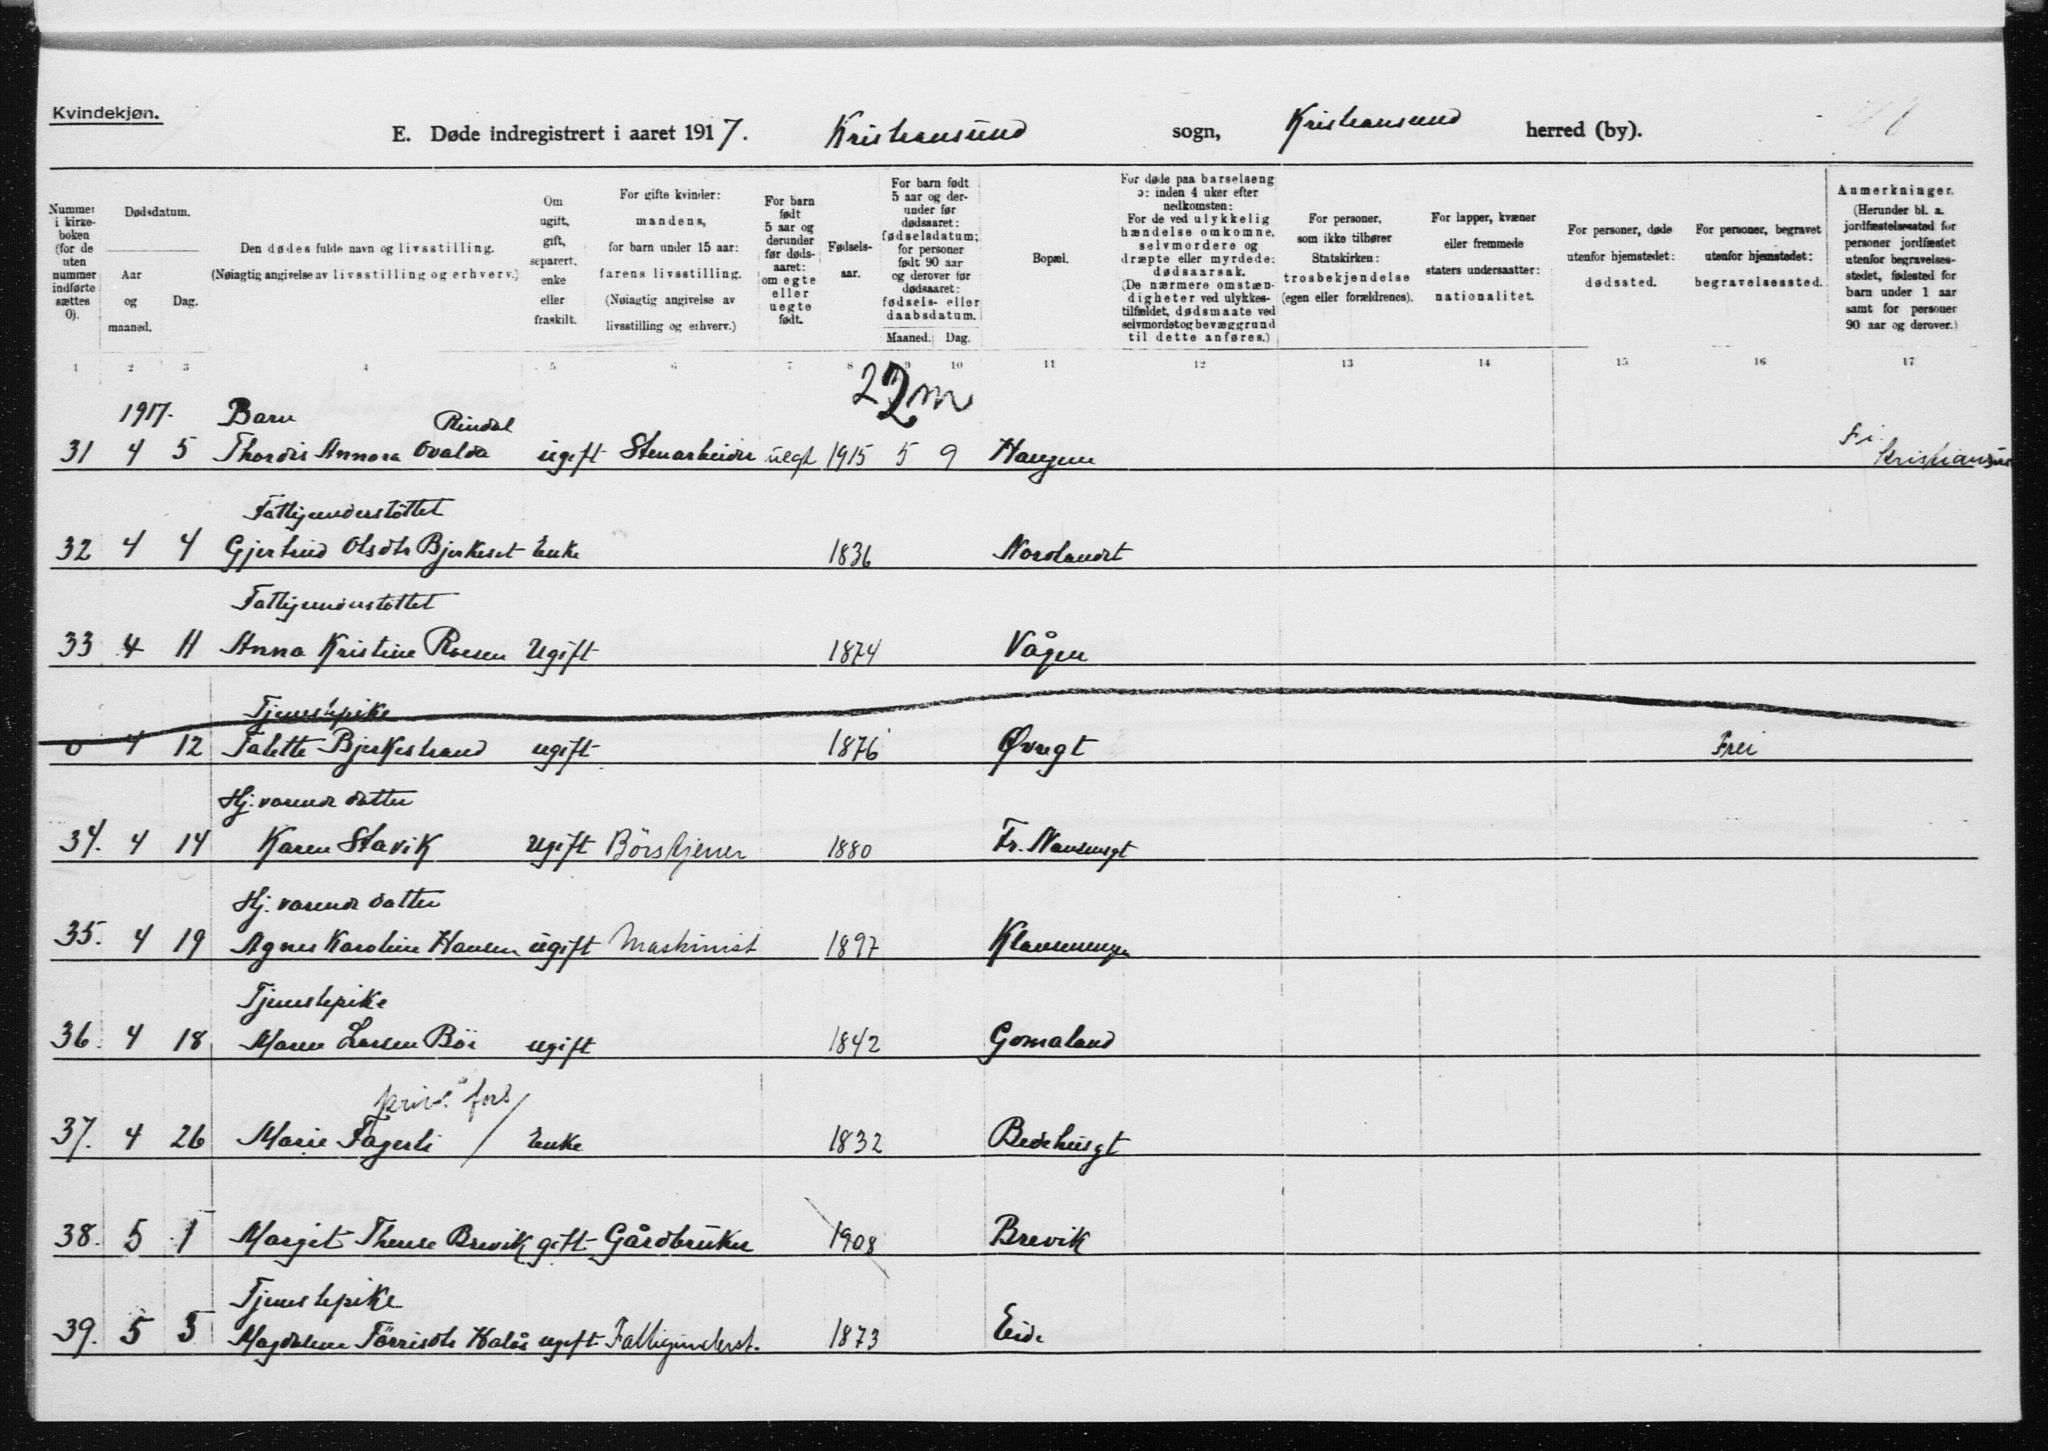 Kvindekjøn.
E. Døde indregistrert i aaret 1917. Kristiansund sogn, Kristiansund herred (by).
Nummer i kirkeboken (for de uten nummer indførte sættes 0).
Dødsdatum.
Aar og maaned.
Dag.
Den dødes fulde navn og livsstilling.
(Nøiagtig angivelse av livsstilling og erhverv.)
Om ugift, gift, separert, enke eller fraskilt.
For gifte kvinder: mandens, for barn under 15 aar: farens livsstilling. (Nøiagtig angivelse av livsstilling og erhverv.)
For barn født 5 aar og derunder før dødsaaret: om egte eller uegte født.
Fødselsaar.
For barn født 5 aar og derunder før dødsaaret: fødselsdatum; for personer født 90 aar og derover før dødsaaret: fødsels- eller daabsdatum.
Maaned. Dag.
Bopæl.
For døde paa barselseng ɔ: inden 4 uker efter nedkomsten: For de ved ulykkelig hændelse omkomne, selvmordere og dræpte eller myrdede: dødsaarsak. (De nærmere omstændigheter ved ulykkestilfældet, dødsmaate ved selvmordet og bevæggrund til dette anføres.)
For personer, som ikke tilhører Statskirken: trosbekjendelse (egen eller forældrenes).
For lapper, kvæner eller fremmede staters undersaatter: nationalitet.
For personer, døde utenfor hjemstedet: dødssted.
For personer, begravet utenfor hjemstedet: begravelsessted.
Anmerkninger. (Herunder bl. a. jordfæstelsessted for personer jordfæstet utenfor begravelsesstedet, fødested for barn under 1 aar samt for personer 90 aar og derover.)
1 2 3 4 5 6 7 8 9 10 11 12 13 14 15 16 17
22 m
1917. Barn Rindal
31 4 5 Thordis Annora Ovalda ugift Stenarbeider uegt 1915 5 9 Haugen F. i. Kristiansund
Fattigunderstöttet
32 4 4 Gjertrud Olsdtr Bjerkeset Enke 1836 Nordlandet
Fattigunderstöttet
33 4 11 Anna Kristine Roesen Ugift 1874 Vågen
Tjenestepike
0 4 12 Talette Bjerkestrand ugift 1876 Øvregt Frei
Hj. varende datter
34. 4 14 Karen Stavik Ugift Börstjener 1880 Fr. Nansensgt
Hj. varende datter
35. 4 19 Agnes Karoline Hansen ugift Maskinist 1897
Tjenestepike
36. 4 18 Maren Larsen Böe ugift 1842 Gomaland
priv. fors
37. 4 26 Marie Fagerli / Enke 1832 Bedehusgt
38. 5 1 Margit Therese Brevik gift Gårdbruker 1908 Brevik
Tjenestepike
39. 5 3 Magdalene Törrisdtr Halås ugift Fattigunderst. 1873 Eide